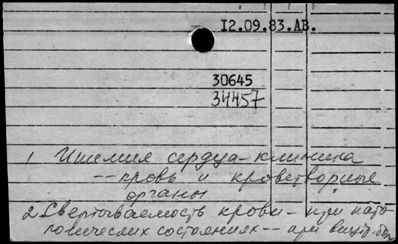 12.09.83.АВ.
30645
34457
1 Ишемия сердца - клиника
-- кровь и кроветворные
органы
2 Свертываемость крови - при пато-
логических состояниях -- при